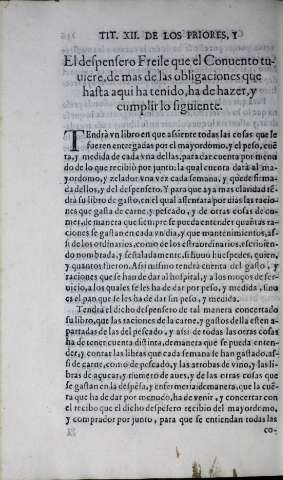 TIT. XII. DE LOS PRIORES, Y
El despensero Freile que el Conuento tu-
uiere, de mas de las obligaciones que
hasta aqui ha tenido, ha de hazer, y
cumplir lo siguiente.
TEndrà vn libro en que assiente todas las cosas que le
fueren entergadas por el mayordomo, y el peso, cuē
ta, y medida de cada vna dellas, para dar cuenta por menu
do de lo que recibiò por junto: la qual cuenta darà al ma-
yordomo, y zelador vna vez cada semana, y quede firma-
da dellos, y del despensero. Y para que aya mas claridad tē
drà su libro de gasto, en el qual assentarà por dias las racio-
nes que gasta de carne, y pescado, y de otras cosas de co-
mer, de manera que siempre se pueda entender quātas ra-
ciones se gastan en cada vn dia, y que mantenimientos, as-
si de los ordinarios, como de los estraordinarios, escriuien-
do nombrada, y señaladamente, si huuo huespedes, quien,
y quantos fueron. Assi mismo tendrà cuenta del gasto, y
raciones que se han de dar al hospital, y a los moços de ser-
uicio, a los quales se les ha de dar por peso, y medida, sino
es el pan que se les ha de dar sin peso, y medida.
Tendrà el dicho despensero de tal manera concertado
su libro, que las raciones de la carne, y gastos della estēn a-
partadas de las del pescado, y assi de todas las otras cosas
ha de tener cuenta distinta, de manera que se pueda enten-
der, y contar las libras que cada semana se han gastado, as-
si de carne, como de pescado, y las arrobas de vino, y las li-
bras de açucar, y numero de aues, y de las otras cosas que
se gastan en la despēsa, y enfermeria: de manera, que la cuē-
ta que ha de dar por menudo, ha de venir, y concertar con
el recibo que el dicho despensero recibio del mayordomo,
y comprador por junto, para que se entiendan todas las
co-